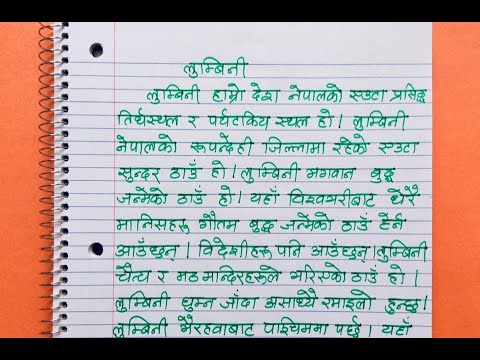 लुम्बिनी
लुम्बिनी हाम्रो देश नेपालको एउटा प्रसिद्ध
तिर्थस्थल र पर्यटकिय स्थल हो। लुम्बिनी
नेपालको रूपन्देही जिल्लामा रहेको एउटा
सुन्दर ठाउँ हो। लुम्बिनी भगवान बुद्ध
जन्मेको ठाउँ हो। यहाँ विश्वभरीबाट धेरै
मानिसहरू गौतम बुद्ध जन्मेको ठाउँ हेर्न
आउँछन्। विदेशीहरू पनि आउँछन्। लुम्बिनी
चैत्य र मठमन्दिरहरूले भरिएको ठाउँ हो।
लुम्बिनी घुम्न जाँदा असाध्यै रमाइलो हुन्छ।
लुम्बिनी भैरहवाबाट पश्चिममा पर्छ। यहाँ